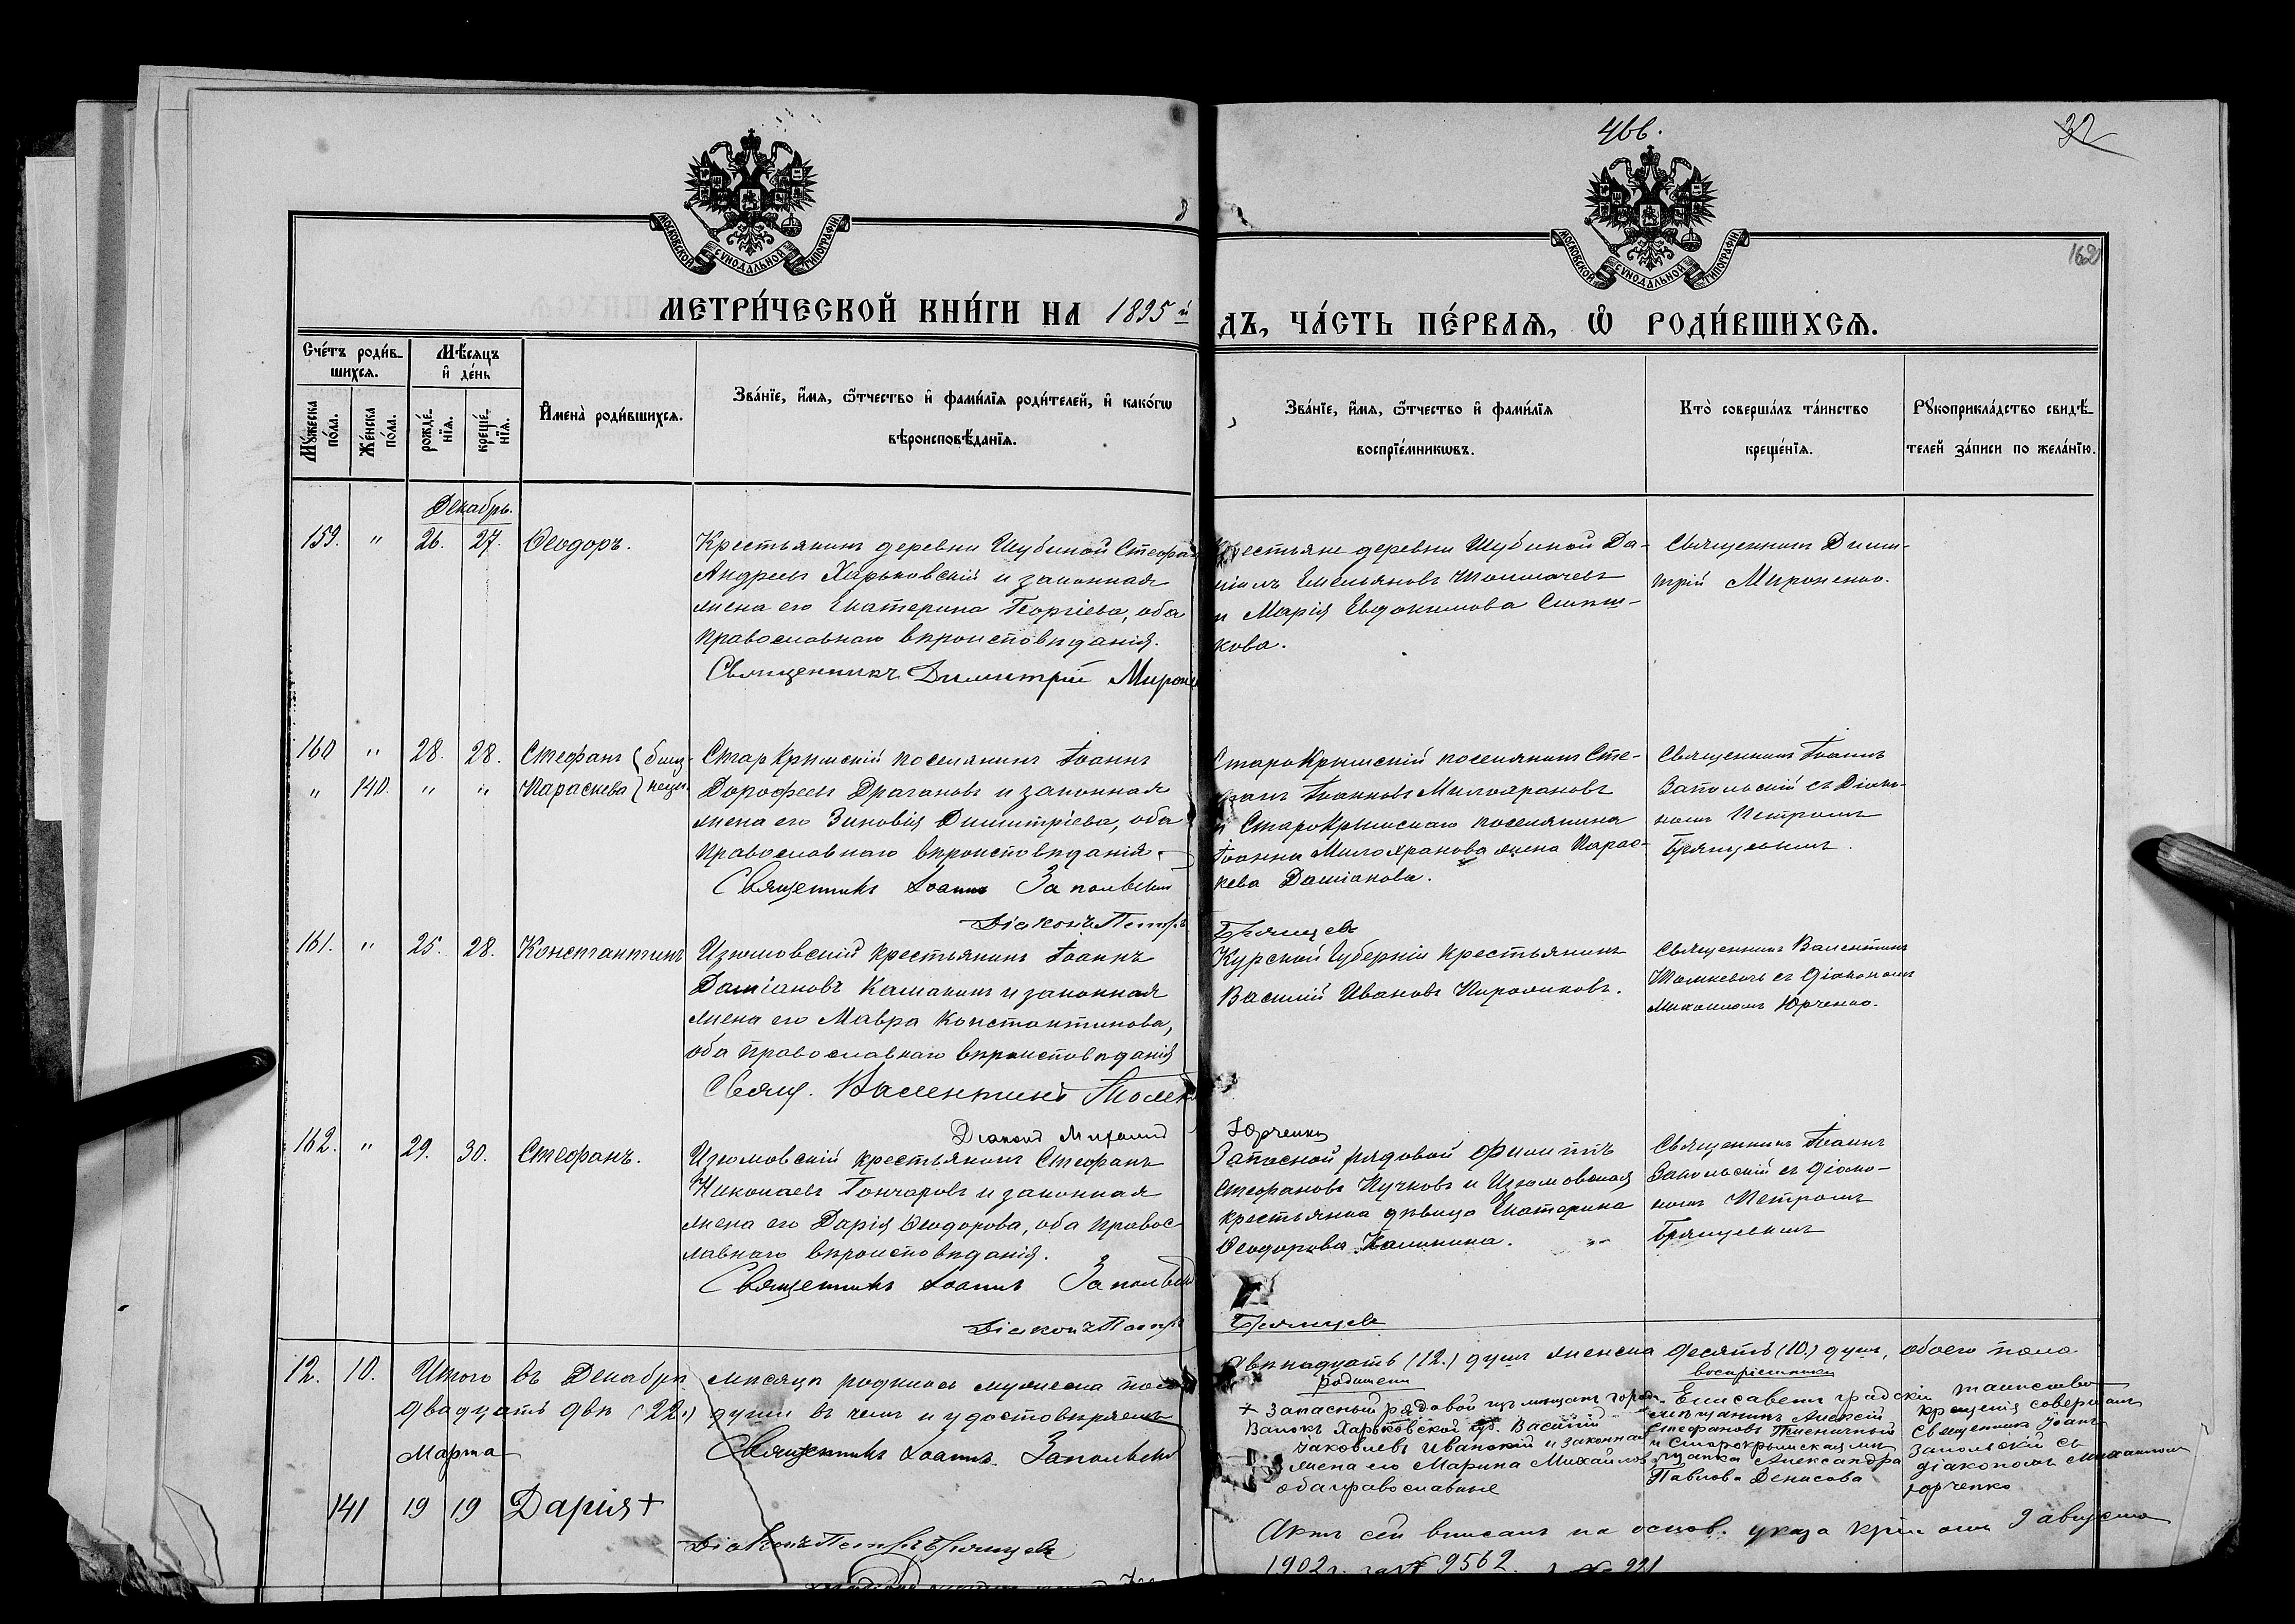 466.
32
162
МОСКОВСКОЙ СѴНОДАЛЬНОЙ ТИПОГРАФІИ
МОСКОВСКОЙ СѴНОДАЛЬНОЙ ТИПОГРАФІИ
МЕТРИ́ЧЕСКОЙ КНИ́ГИ НА 1895 й
ДЪ, ЧА́СТЬ ПЕ́РВАѦ, Ѡ҆ РОДИ́ВШИХСѦ.
Сче́тъ роди́в-
шихсѧ.
Мꙋ́жеска по́ла.
Же́нска по́ла.
Мѣ́сѧцъ
и҆ де́нь
рожде́-
нїѧ.
креще́-
нїѧ.
И҆мена̀ роди́вшихсѧ.
Зва́нїе, и҆́мѧ, ѻ҆́тчество и҆ фами́лїѧ роди́телей, и҆ како́гѡ
вѣроисповѣ́данїѧ.
Зва́нїе, и҆́мѧ, ѻ҆́тчество и҆ фами́лїѧ
воспрїе́мникѡвъ.
Кто̀ соверша́лъ та́инство
креще́нїѧ.
Рꙋкоприкла́дство свидѣ́-
телей за́писи по жела́нїю.
Декабрь.
159. " 26. 27. Ѳеодоръ.
Крестьянинъ деревни Шубиной Стефанъ
Андреевъ Харьковскій и законная
жена его Екатерина Георгіева, оба
православнаго вѣроисповѣданія.
Священникъ Димитрій Мироне
Крестьяне деревни Шубиной Да-
ніилъ Емельяновъ Толмачевъ
и Марія Евдокимова
кова.
Священникъ Дими-
трій Мироненко.
160 " 28. 28. Стефанъ } близ-
" 140. " " Параскева } нецы.
Старокрымскій поселянинъ Іоаннъ
Дорофеевъ Драгановъ и законная
жена его Зиновія Димитріева, оба
православнаго вѣроисповѣданія.
Священникъ Іоаннъ Запольскій
Діаконъ Петръ
Старокрымскій поселянинъ Сте-
фанъ Іоанновъ Милохрановъ
и Старокрымскаго поселянина
Іоанна Милохранова жена Парас-
кева Даміанова.
Брянцевъ
Священникъ Іоаннъ
Запольскій съ Діако-
номъ Петромъ
Брянцевымъ.
161. " 25. 28. Константинъ
Изюмовскій крестьянинъ Іоаннъ
Даміановъ и законная
жена его Мавра Константинова,
оба православнаго вѣроисповѣданія
Свящ. Валентинъ
Діаконъ Михаилъ
Курской Губерніи крестьянинъ
Василій Ивановъ
Юрченко
Священникъ Валентинъ
съ діакономъ
Михаиломъ Юрченко.
162. " 29. 30. Стефанъ.
Изюмовскій крестьянинъ Стефанъ
Николаевъ Гончаровъ и законная
жена его Дарія Ѳеодорова, оба правос
лавнаго вѣроисповѣданія.
Священникъ Іоаннъ Запольскій
Діаконъ Петръ
Запасной рядовой Филиппъ
Стефановъ Пучковъ и Изюмовская
крестьянка дѣвица Екатерина
Ѳеодорова Калинина.
Брянцевъ
Священникъ Іоаннъ
Запольскій съ діако-
номъ Петромъ
Брянцевымъ
12. 10. Итого въ Декабрѣ мѣсяцѣ родилось мужеска пола
двѣнадцать (12.) душъ женска десять (10.) душъ, обоего пола
двадцать двѣ (22.) души въ чемъ и удостовѣряемъ
Священникъ Іоаннъ Запольскій
Марта
141 19 19 Дарія +
Діаконъ Петръ Брянцевъ
родители
+ Запасный рядовой изъ мѣщанъ города
Валокъ Харьковской губ. Василій
Іаковлевъ Иванскій и законная
жена его Марина Михайлова
оба православные
воспріемники
Елисаветградскій
мѣщанинъ Алексій
Стефановъ Пшеничный
и Старокрымская мѣ
щанка Александра
Павлова Денисова
таинство
крещенія совершалъ
Священникъ Іоаннъ
Запольскій съ
діакономъ Михаиломъ
Юрченко
Актъ сей вписанъ на основ. указа отъ 9 августа
1902 г. за № 9562.